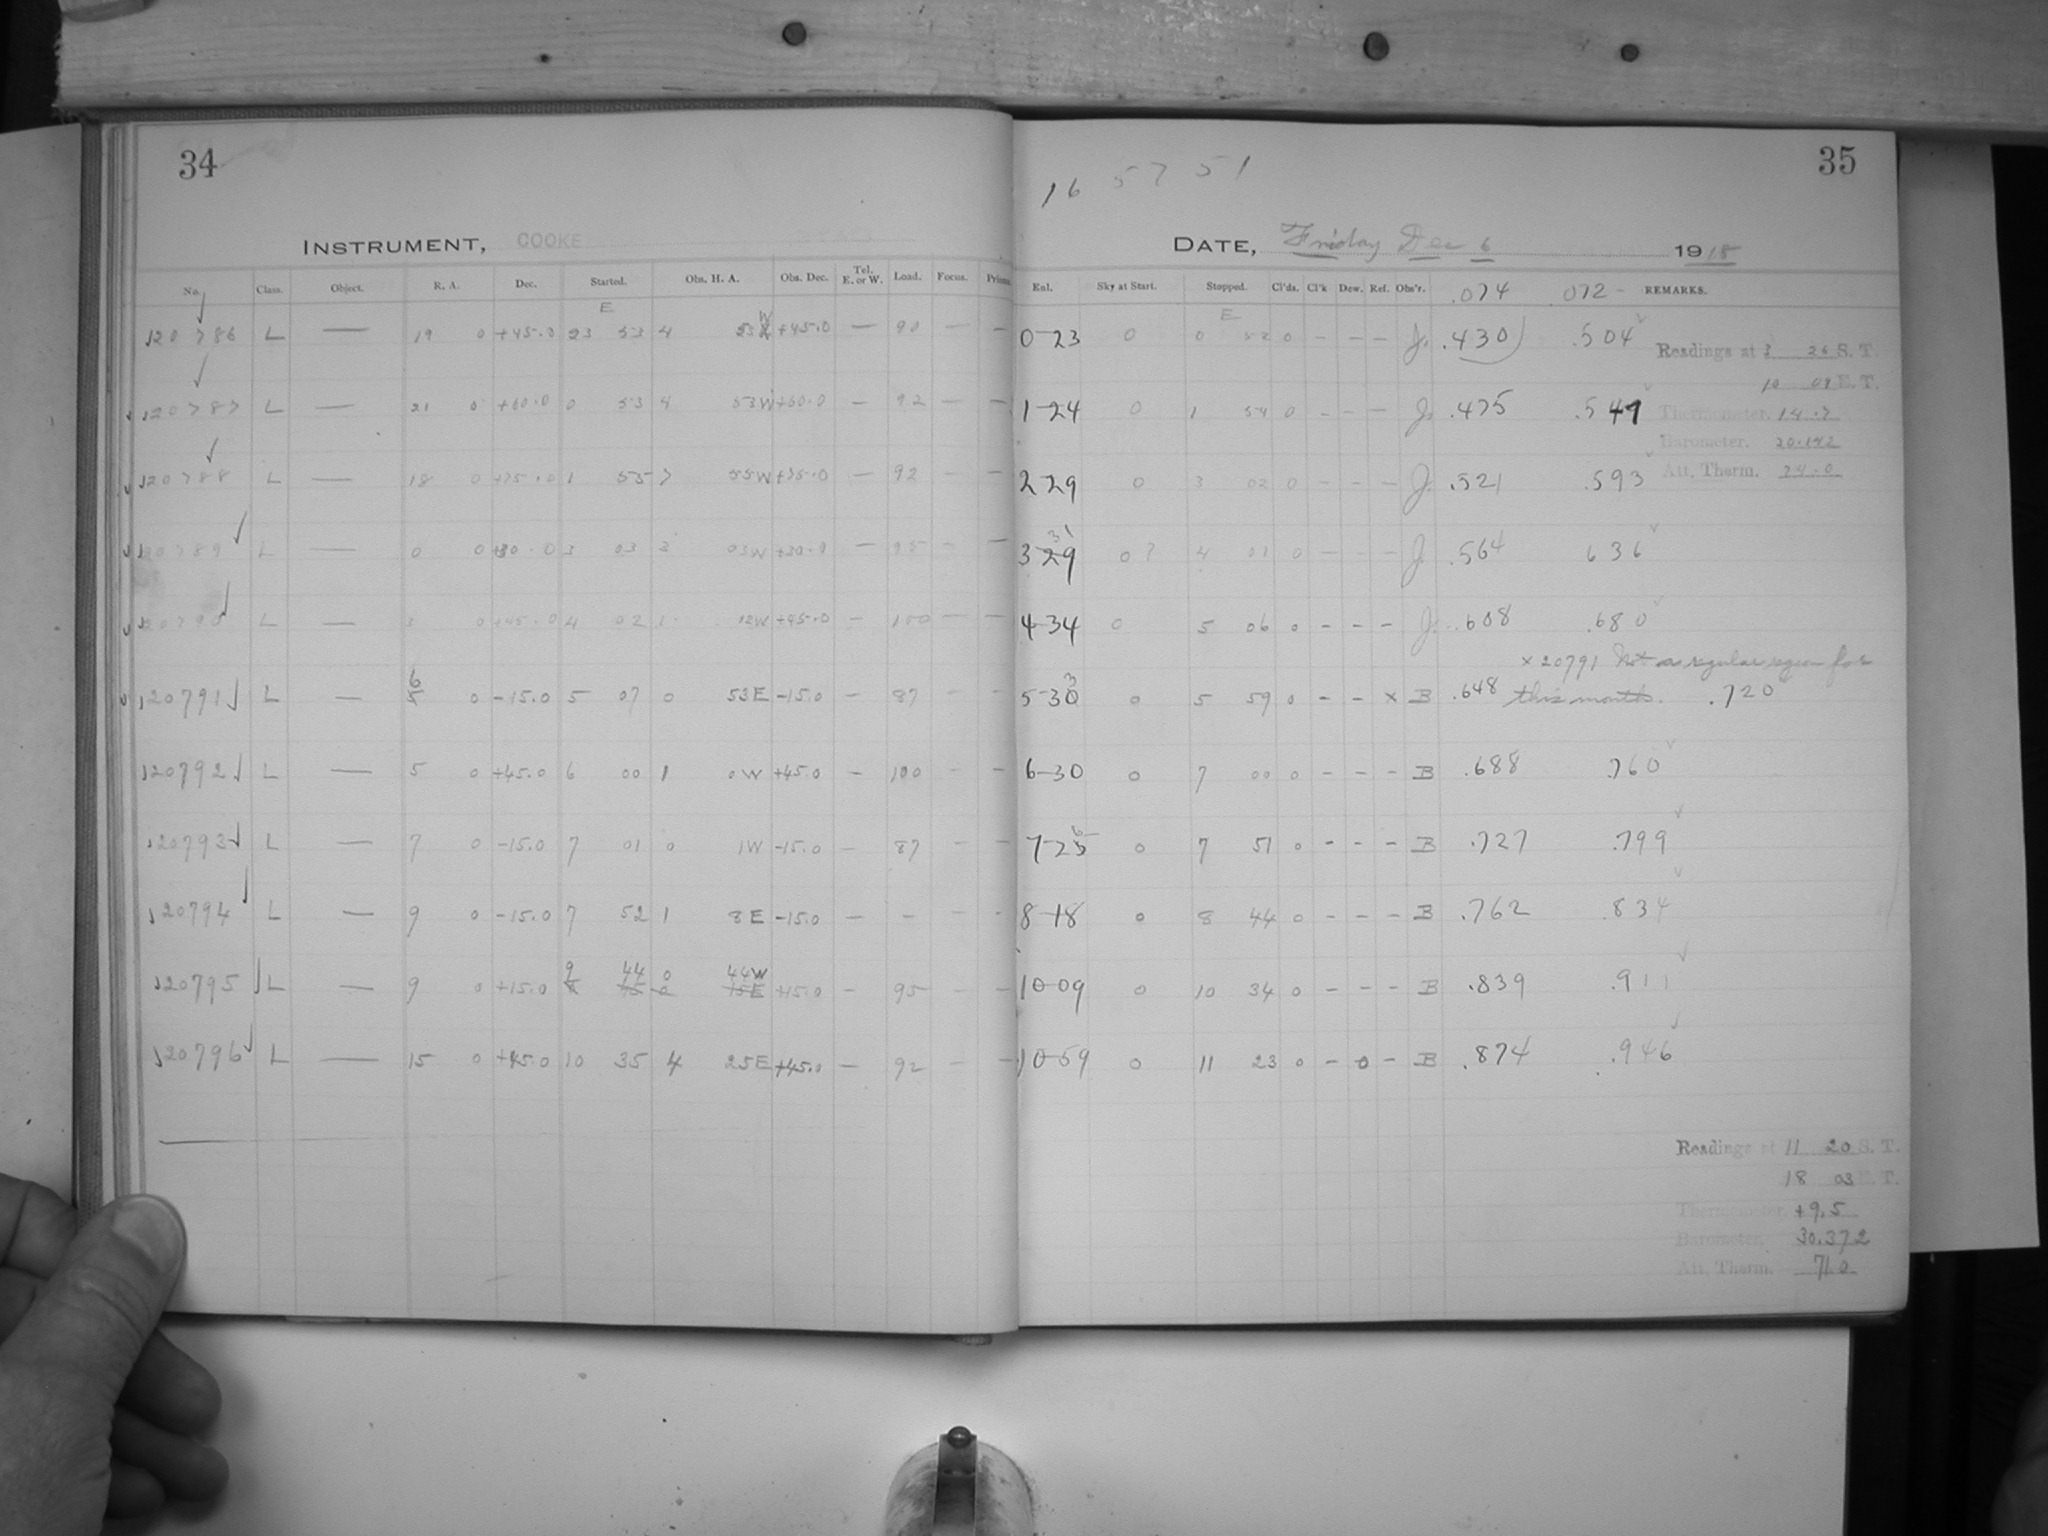 34
INSTRUMENT, COOKE
No. Class. Object. R. A. Dec. Started. Obs. H. A. Obs. Dec. Tel. E. or W. Load. Focus.
E
120786 L — 19 0 +45.0 23 53 4 W +45.0 — 90 — —
120787 L — 21 0 +60.0 0 53 4 53W +60.0 — 92 — —
120788 L — 18 0 +75.0 1 55 7 55W +75.0 — 92 — —
120789 L — 0 0 +30.0 3 03 3 03W +30.0 — 95 — —
120790 L — 3 0 +45.0 4 02 1 12W +45.0 — 100 — —
6
120791 L — 5 0 -15.0 5 07 0 53E -15.0 — 87 - -
120792 L — 5 0 +45.0 6 00 1 0W +45.0 — 100 - -
120793 L — 7 0 -15.0 7 01 0 1W -15.0 — 87 - -
120794 L — 9 0 -15.0 7 52 1 8E -15.0 — - - -
9 44 0 44W
120795 L — 9 0 +15.0 15 0 15E +15.0 — 95 - -
120796 L — 15 0 +45.0 10 35 4 25E +45.0 — 92 - -
16 57 51
35
DATE, Friday Dec 6 1918
Enl. Sky at Start. Stopped. Cl'ds. Cl'k Dew. Ref. Obs'r. .074 .072 - REMARKS.
E
0-23 0 0 52 0 - - - J. .430 .504
Readings at 3 26 S. T.
10 09 E. T.
1-24 0 1 54 0 - - - J. .475 .547
Thermometer. 14.7
Barometer.
2 29 0 3 02 0 - - - J. .521 .593
Att. Therm. 74.0
31
3-29 0? 4 01 0 - - - J .564 636
4-34 0 5 06 0 - - - J. .608 .680
x 20791 Not a regular region for
3
5-30 0 5 59 0 - - x B .648 this month. .720
6-30 0 7 00 0 - - - B .688 .760
6
7-25 0 7 51 0 - - - B .727 .799
8-18 0 8 44 0 - - - B .762 .834
10-09 0 10 34 0 - - - B .839 .911
10-59 0 11 23 0 - 0 - B .874 .946
Readings at 11 20 S. T.
18 03 E. T.
Thermometer. +9.5
Barometer. 30.372
Att. Therm. 71.0